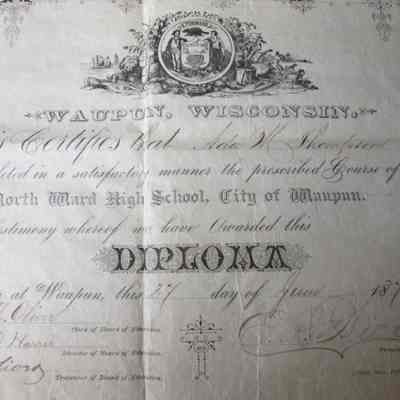 WAUPUN, WISCONSIN.
Certifies that Ada M Thompson
in a satisfactory manner the prescribed Course of
North Ward High School, City of Waupun.
whereof we have Awarded this
DIPLOMA
at Waupun, this 27 day of June 187
Clerk of Board of Education.
Director of Board of Education.
Treasurer of Board of Education.